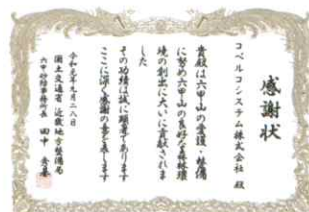 感謝状
コベルコシステム株式会社 殿
貴殿は六甲山の愛護・整備
に努め六甲山の良好な森林環
境の創出に大いに貢献されま
した
その功績は誠に顕著であります
ここに深く感謝の意を表します
令和元年九月二八日
国土交通省 近畿地方整備局
六甲砂防事務所長 田中 秀基